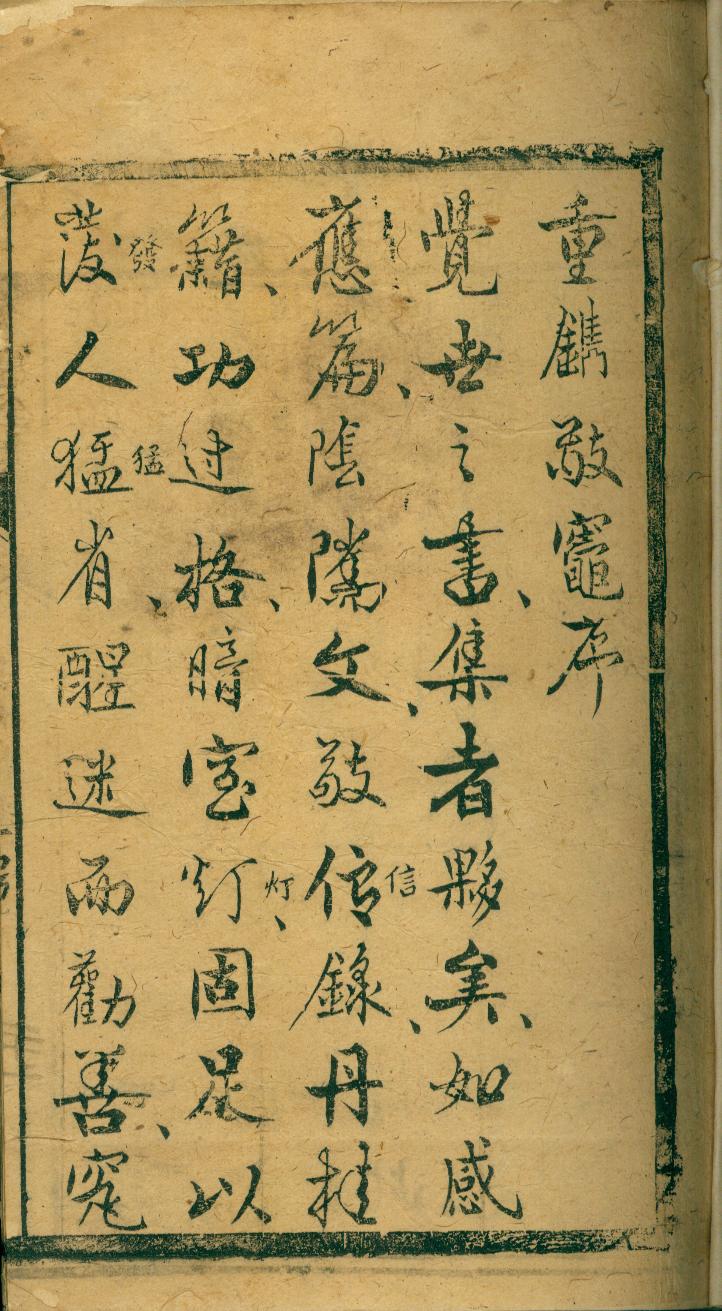 重鐫敬竈序
覺世之書、集者夥矣、如感
應篇、陰隲文、敬信錄、丹桂
信
籍、功过格、暗室灯、固足以
灯
發人猛省、醒迷而勸善、究
發
猛